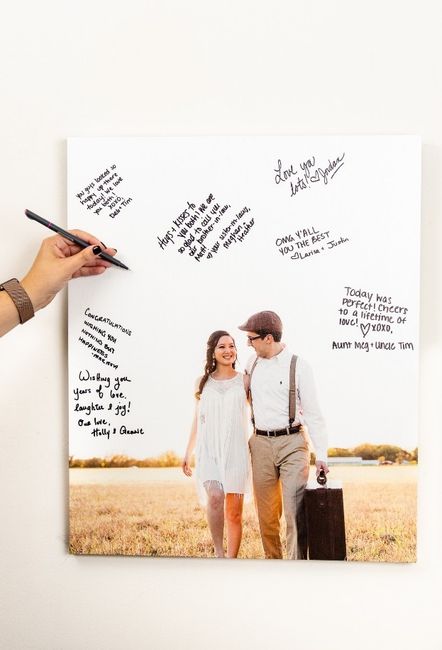 you guys looked so
happy up there
today! We love
you both!
XOXO,
Tim
Hugs + Kisses to
you both! We are
so glad to call you
our brother-in-law,
Matt!
♡ your sister-in-laws,
Meghan +
Heather
Love you
lots! ♡ Jordan
OMG Y'ALL
YOU THE BEST
♡ Larisa + Justin
Today was
Perfect! Cheers
to a lifetime of
love! ♡ XOXO,
Aunt Meg + Uncle Tim
CONGRATULATIONS
WISHING YOU
NOTHING BUT
HAPPINESS
Wishing you
years of love,
laughter & joy!
love,
Holly &